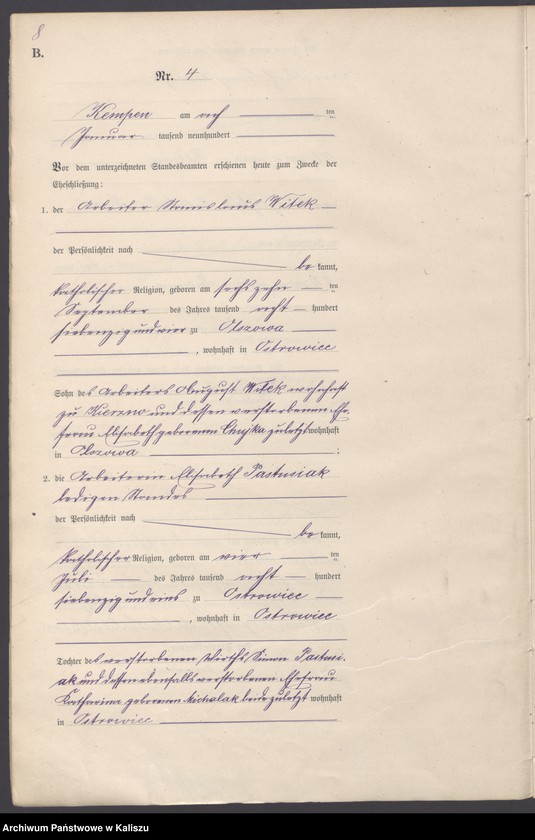 8
B.
Nr. 4
Kempen am acht ten
Januar tausend neunhundert
Vor dem unterzeichneten Standesbeamten erschienen heute zum Zwecke der
Eheschließung:
1. der Arbeiter Stanislaus Witek
der Persönlichkeit nach
be kannt,
katholischer Religion, geboren am sechszehn ten
September des Jahres tausend acht hundert
siebenzig und vier zu Olszowa
, wohnhaft in Ostrowiec
Sohn des Arbeiters August Witek wohnhaft
zu Kierzno und dessen verstorbenen Ehe-
frau Elisabeth geborenen zuletzt wohnhaft
in Olszowa ;
2. die Arbeiterin Elisabeth Pastusiak
ledigen Standes
der Persönlichkeit nach
be kannt,
katholischer Religion, geboren am vier ten
Juli des Jahres tausend acht hundert
siebenzig und eins zu Ostrowiec
, wohnhaft in Ostrowiec
Tochter des verstorbenen Wirths Simon Pastusi-
ak und dessen ebenfalls verstorbenen Ehefrau
Katharina geborenen Michalak beide zuletzt wohnhaft
in Ostrowiec
Archiwum Państwowe w Kaliszu